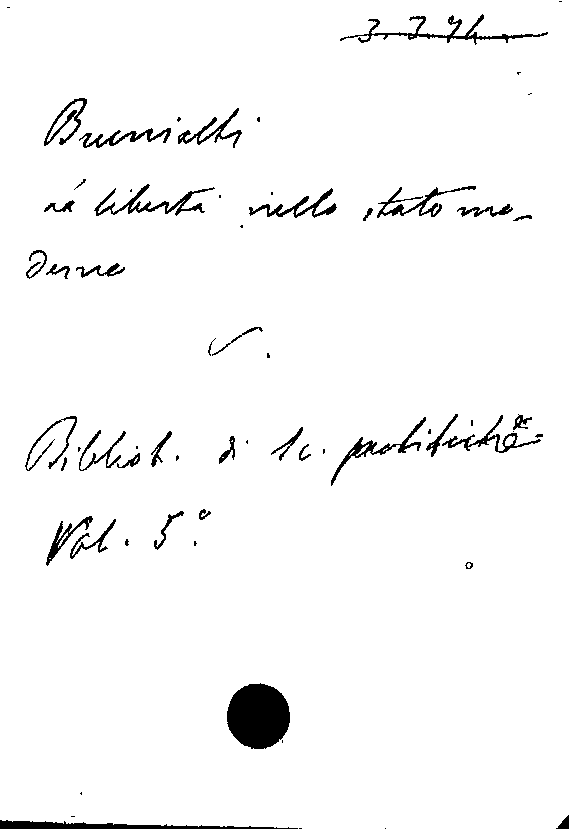 3.3.74.
Brunialti
La libertà nello stato mo-
derno
V.
Bibliot. di Sc. politiche
Vol. 5º